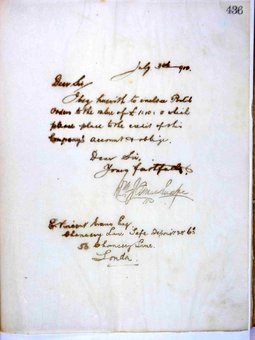 436
July 30th 1910.
Dear Sir
I beg herewith to enclose Postal
Orders to the value of £1:10:0 which
please place to the credit of this
Company's account & oblige.
Dear Sir,
Yours faithfully
E. Vincent Evans Esq
Chancery Lane Safe Deposit & Co
Chancery Lane
London